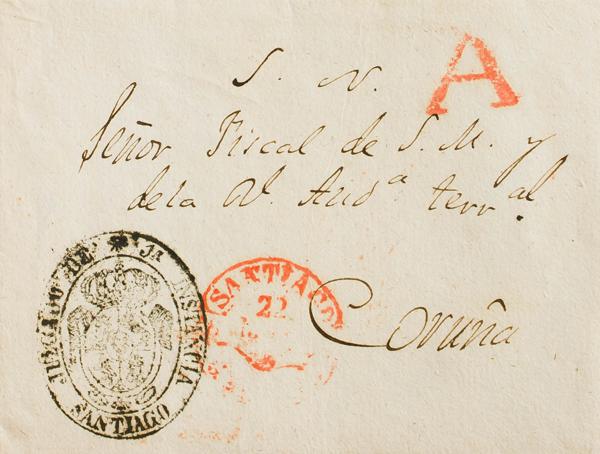 S. N.
A
Señor Fiscal de S. M. y
de la Al. Aud.ª terr.al
JUZGADO DE 1ª INSTANCIA
SANTIAGO
SANTIAGO
22
Coruña